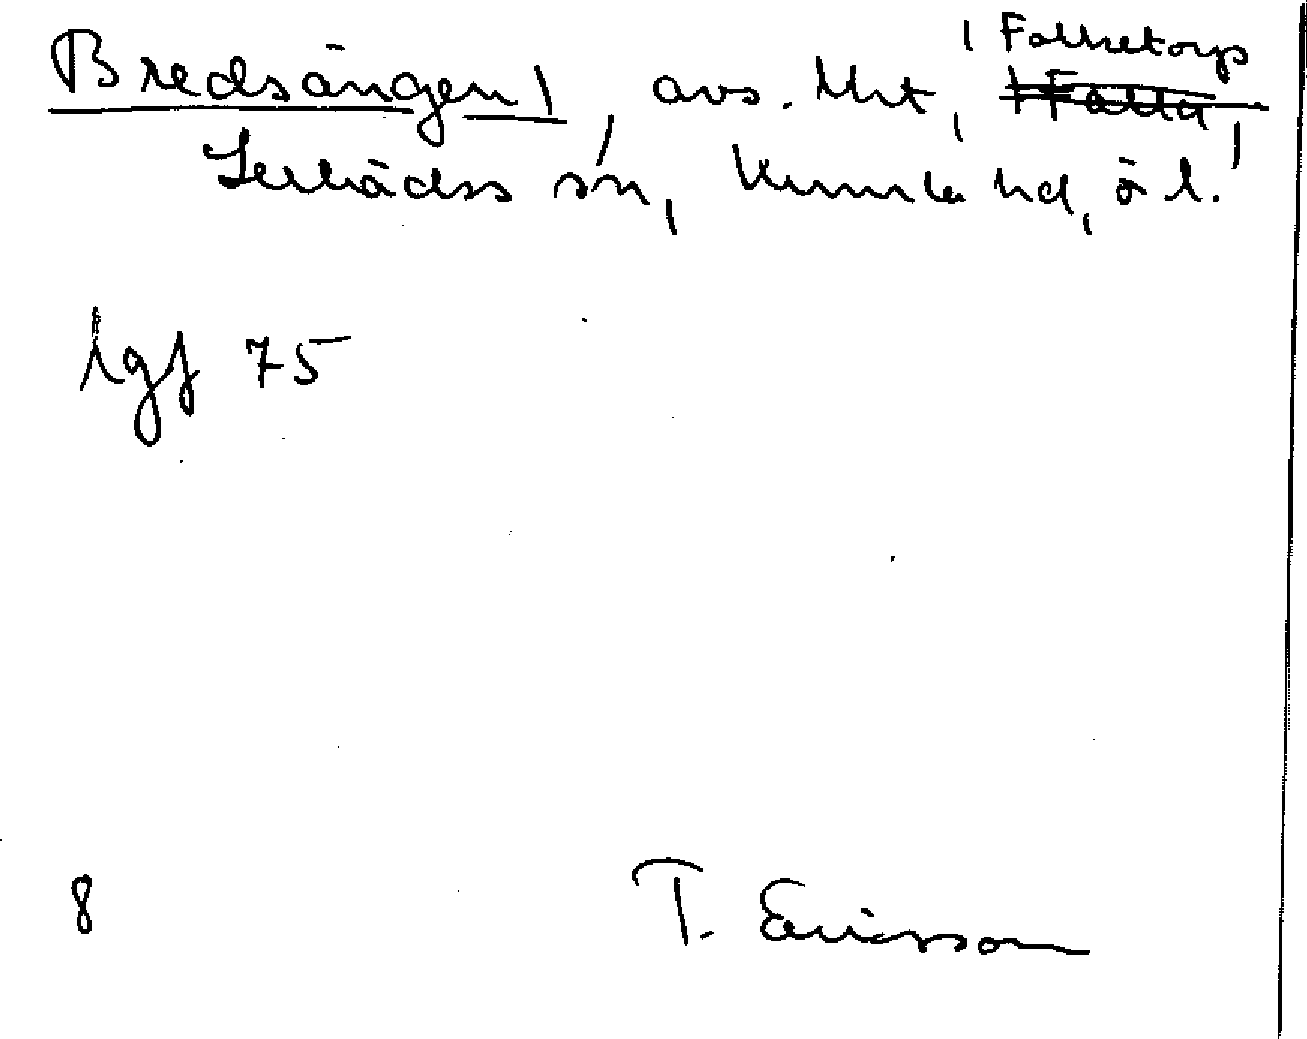 Bredsängen, avs. lht, Folketorp
Lerbäcks sn, Kumla hd, ö l.
lgf 75
8 T. Ericsson